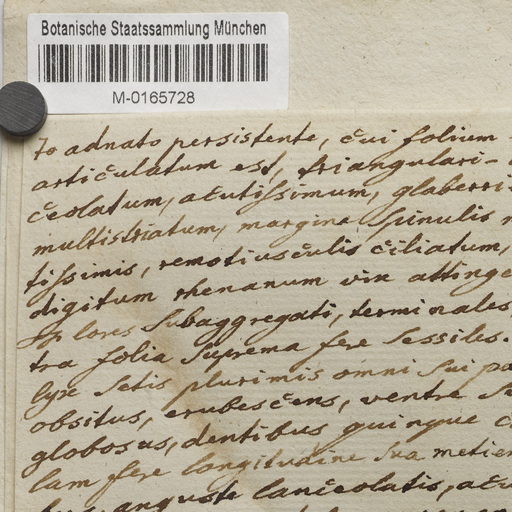 Botanische Staatssammlung München
M-0165728
to adnato persistente, cui folium
articulatum est, triangulari-
ceolatum, acutissimum, glaberri
multistriatum, margine spinulis
tissimis, remotiusculis ciliatum,
digitum rhenanum vix attinge
Flores subaggregati, terminales,
tra folia suprema fere sessiles.
lyx setis plurimis omni sui pa
obsitus, erubescens, ventre su
globosus, dentibus quinque c
lum fere longitudine sua metien
anguste lanceolatis, acu